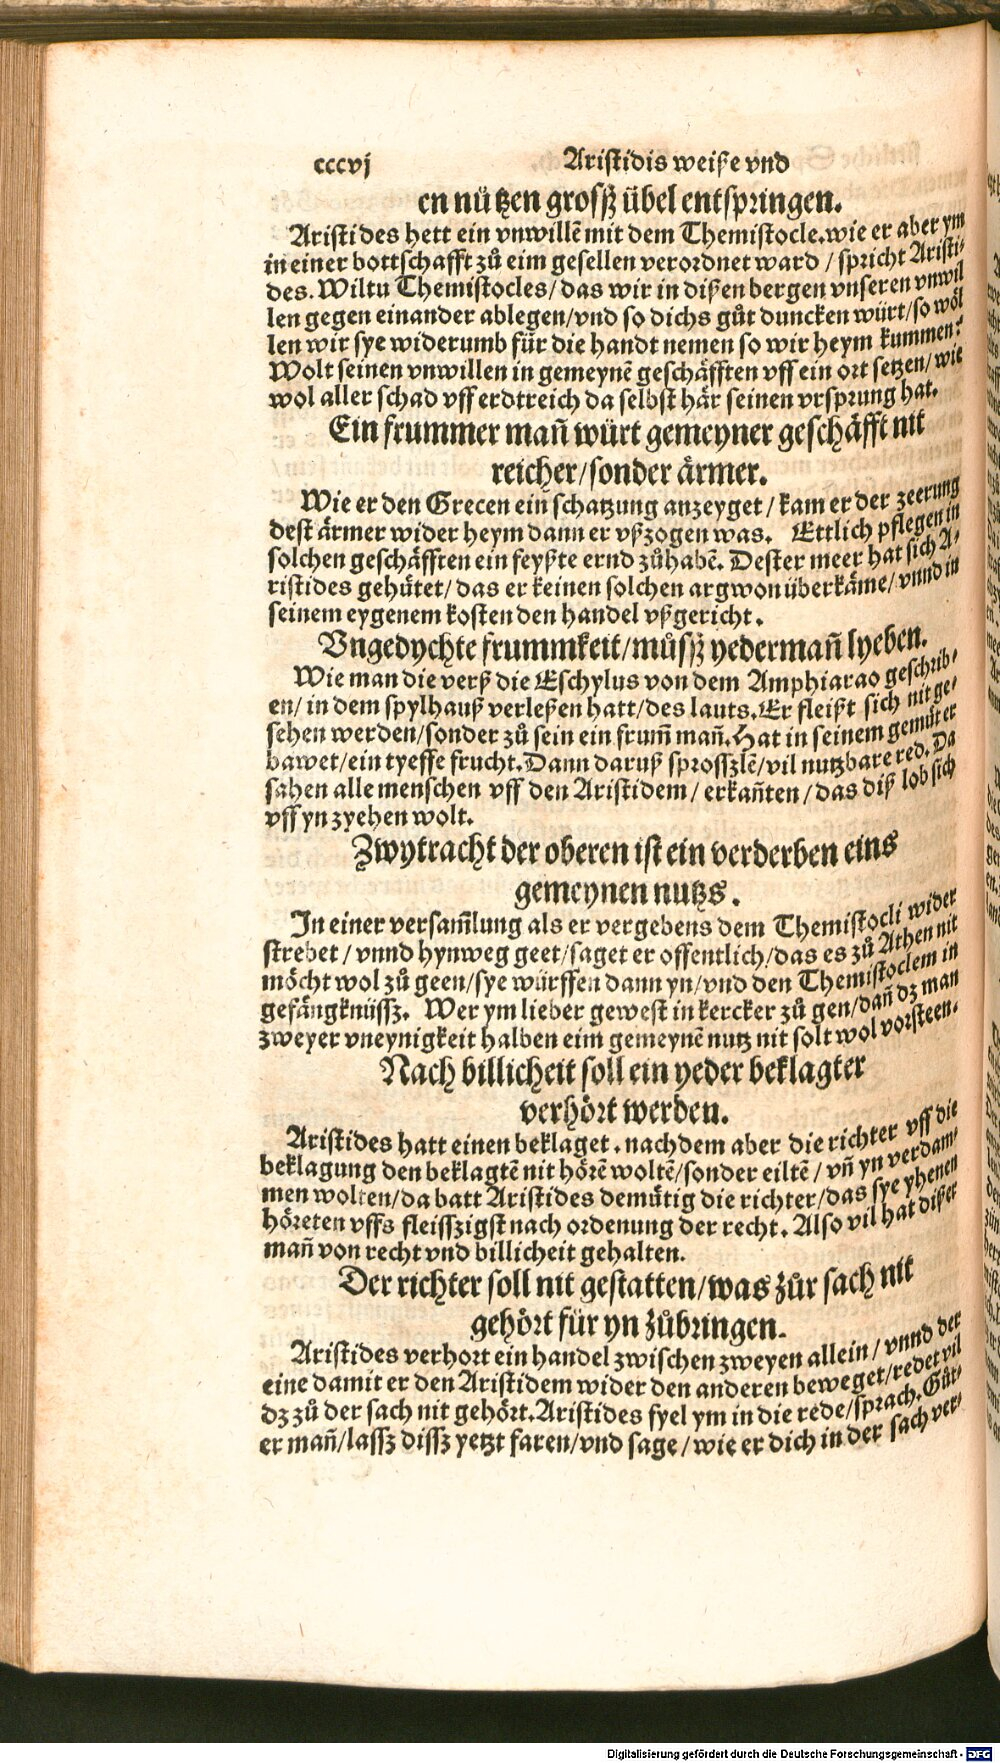 cccvj Aristidis weiße vnd
en nützen grossz übel entspringen.
Aristides hett ein vnwillẽ mit dem Themistocle. wie er aber ym
in einer bottschafft zů eim gesellen verordnet ward / spricht Aristi-
des. Wiltu Themistocles/ das wir in dißen bergen vnseren vnwil
len gegen einander ablegen/ vnd so dichs gůt duncken würt/ so wöl
len wir sye widerumb für die handt nemen so wir heym kummen?
Wolt seinen vnwillen in gemeynẽ geschäfften vff ein ort setzen/ wie
wol aller schad vff erdtreich da selbst här seinen vrsprung hat.
Ein frummer mañ würt gemeyner geschäfft nit
reicher/ sonder ärmer.
Wie er den Grecen ein schatzung anzeyget / kam er der zeerung
dest ärmer wider heym dann er vßzogen was. Ettlich pflegen in
solchen geschäfften ein feyßte ernd zůhabẽ. Dester meer hat sich A-
ristides gehütet/ das er keinen solchen argwon überkäme/ vnnd in
seinem eygenem kosten den handel vßgericht.
Vngedychte frummkeit/ můssz yedermañ lyeben.
Wie man die verß die Eschylus von dem Amphiarao geschrib-
en/ in dem spylhauß verleßen hatt/ des lauts. Er fleißt sich nit ge-
sehen werden/ sonder zů sein ein frum̃ mañ. Hat in seinem gemüt er
bawet/ ein tyeffe frucht. Dann daruß sprosszlẽ/ vil nutzbare red. Da
sahen alle menschen vff den Aristidem / erkañten / das diß lob sich
vff yn zyehen wolt.
Zwytracht der oberen ist ein verderben eins
gemeynen nutzs.
In einer versam̃lung als er vergebens dem Themistocli wider
strebet / vnnd hynweg geet/ saget er offentlich/ das es zů Athen nit
möcht wol zů geen/ sye würffen dann yn/ vnd den Themistoclem in
gefängknüssz. Wer ym lieber gewest in kercker zů gen/ dañ dz man
zweyer vneynigkeit halben eim gemeynẽ nutz nit solt wol vorsteen.
Nach billicheit soll ein yeder beklagter
verhört werden.
Aristides hatt einen beklaget. nachdem aber die richter vff die
beklagung den beklagtẽ nit hörẽ woltẽ/ sonder eiltẽ / vñ yn verdam-
men wolten/ da batt Aristides demütig die richter/ das sye yhenen
höreten vffs fleisszigst nach ordenung der recht. Also vil hat dißer
mañ von recht vnd billicheit gehalten.
Der richter soll nit gestatten/ was zůr sach nit
gehört für yn zůbringen.
Aristides verhort ein handel zwischen zweyen allein / vnnd der
eine damit er den Aristidem wider den anderen beweget/ redet vil
dz zů der sach nit gehört. Aristides fyel ym in die rede/ sprach. Gůt-
er mañ/ lassz dissz yetzt faren/ vnd sage / wie er dich in der sach ver-
Digitalisierung gefördert durch die Deutsche Forschungsgemeinschaft - DFG